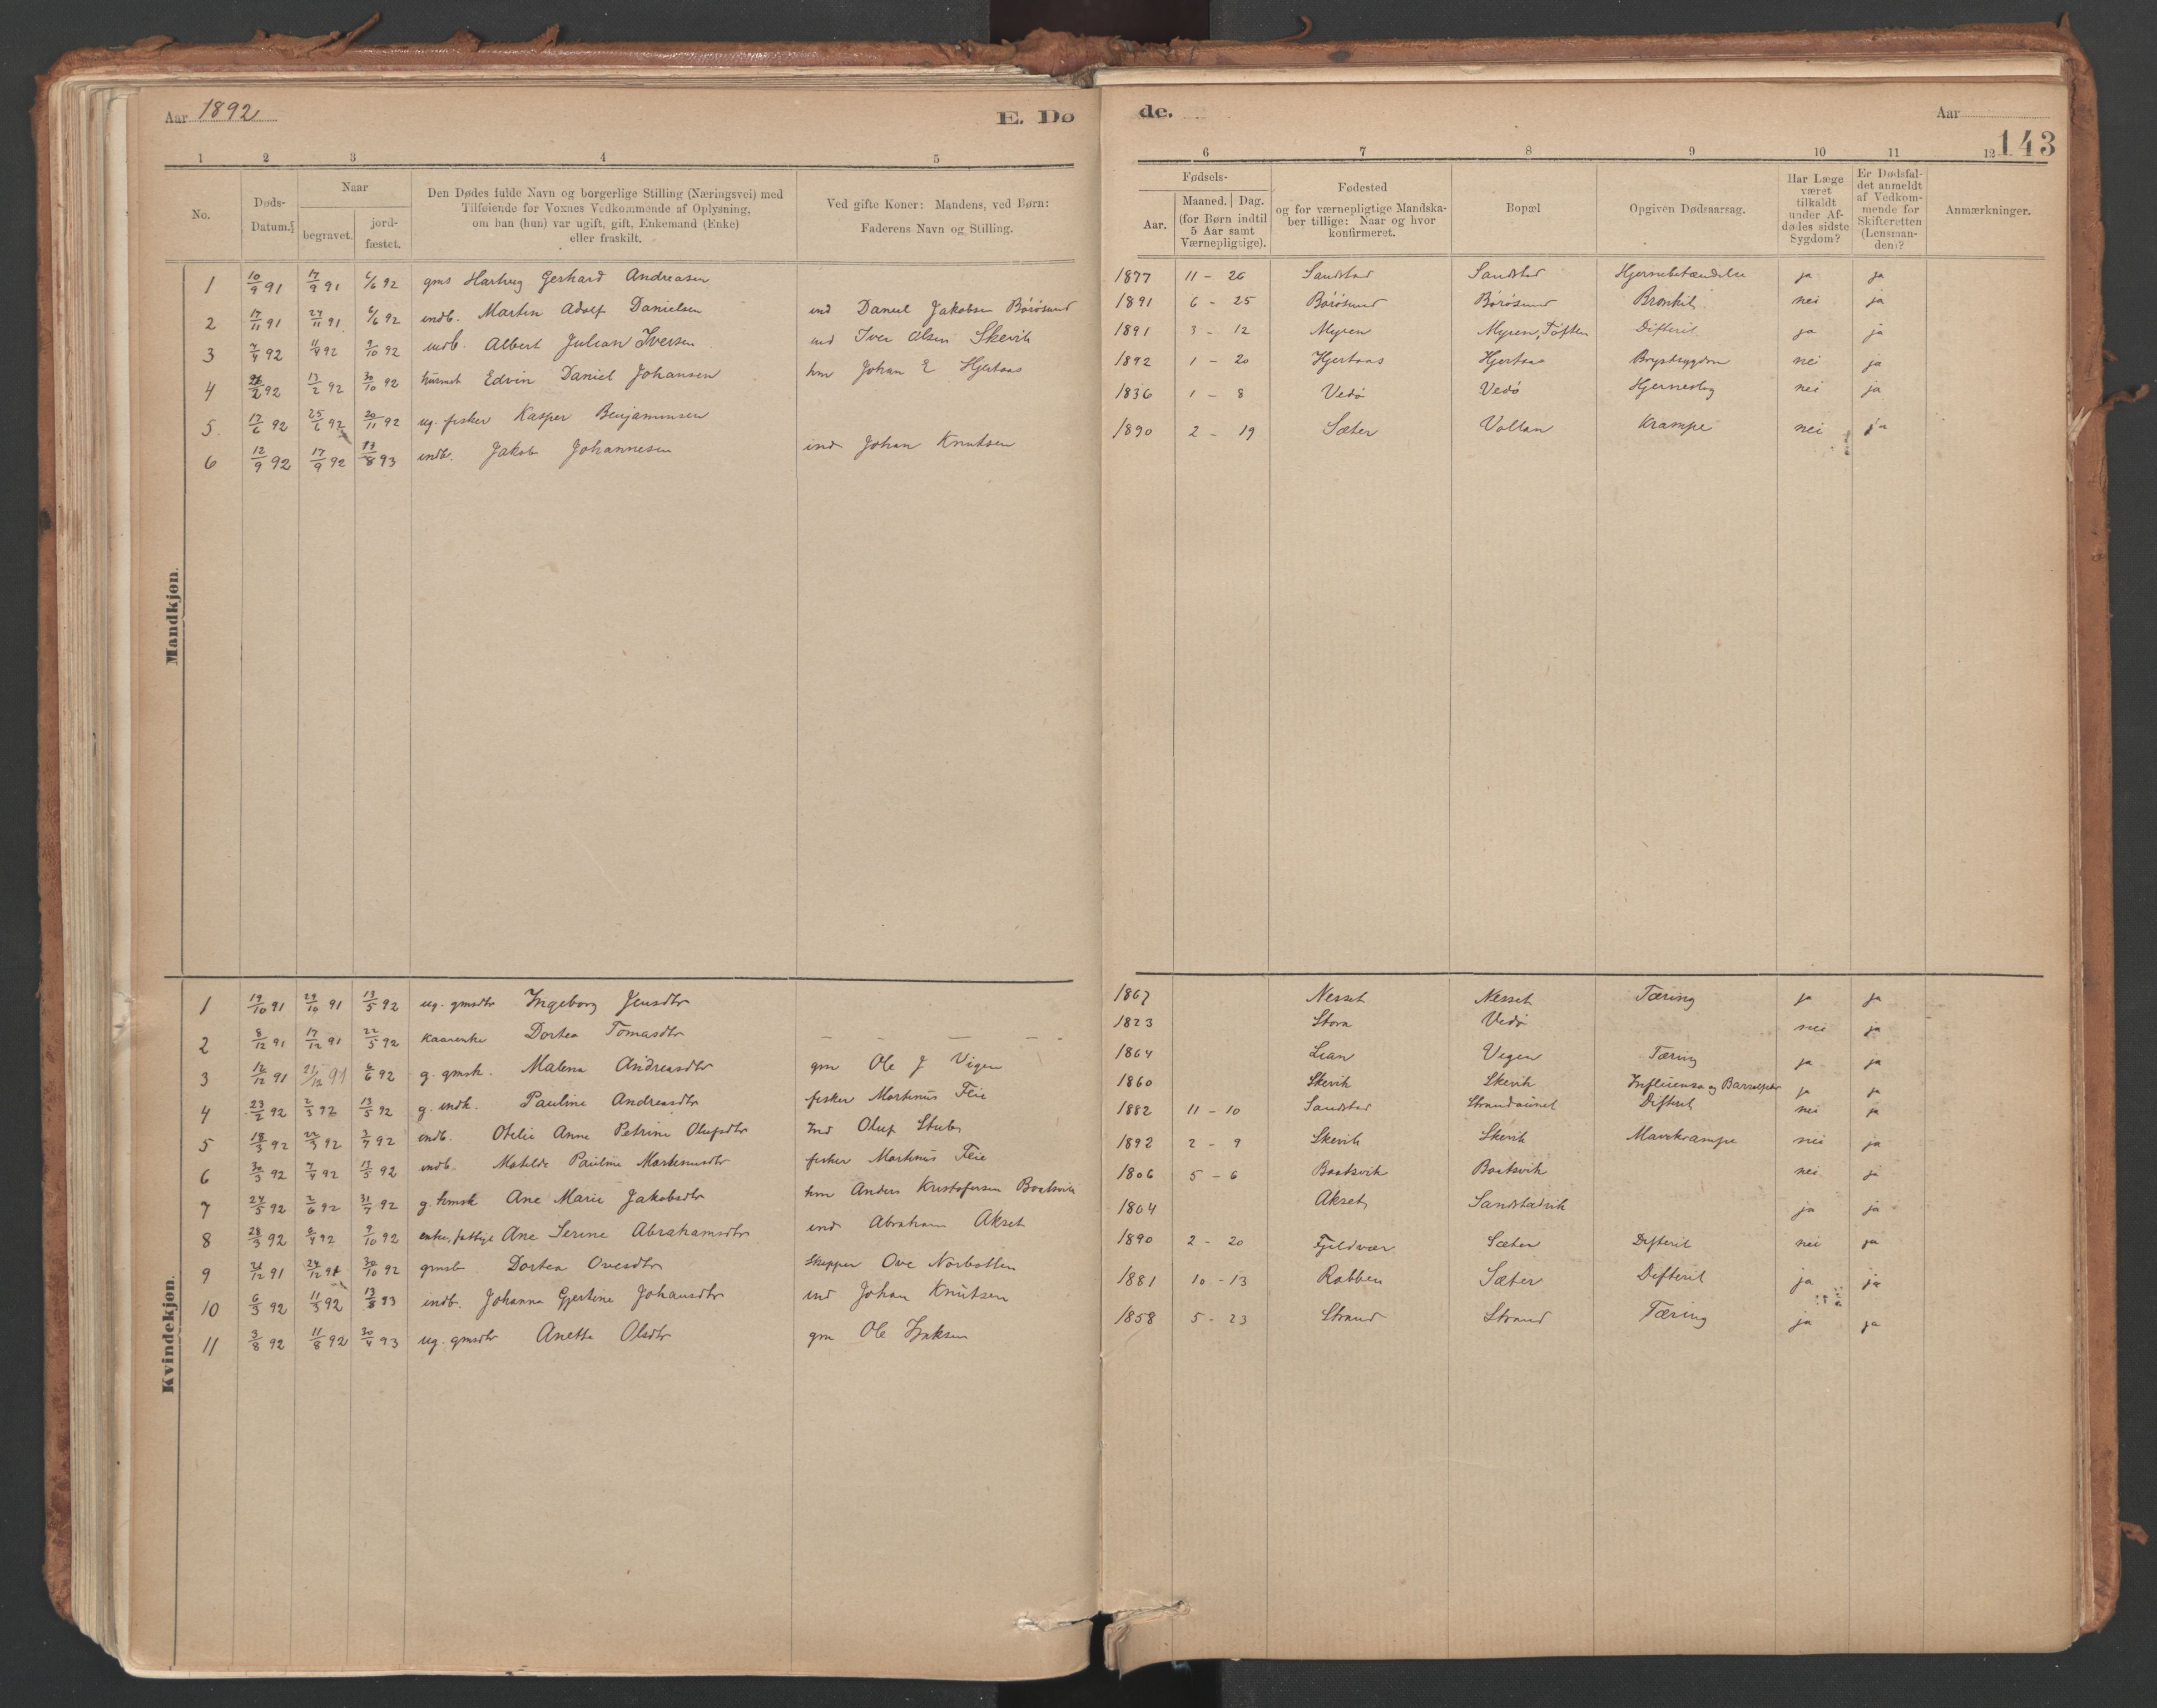 Aar 1892 E. Døde. Aar
143
1 2 3 4 5 6 7 8 9 10 11 12
No. Døds-Datum. Naar begravet. jordfæstet. Den Dødes fulde Navn og borgerlige Stilling (Næringsvei) med Tilføiende for Voxnes Vedkommende af Oplysning, om han (hun) var ugift, gift, Enkemand (Enke) eller fraskilt. Ved gifte Koner: Mandens, ved Børn: Faderens Navn og Stilling. Fødsels- Aar. Maaned. Dag. (for Børn indtil 5 Aar samt Værnepligtige). Fødested og for værnepligtige Mandskaber tillige: Naar og hvor konfirmeret. Bopæl Opgiven Dødsaarsag. Har Læge været tilkaldt under Afdødes sidste Sygdom? Er Dødsfaldet anmeldt af Vedkommende for Skifteretten (Lensmanden)? Anmærkninger.
Mandkjøn.
1 10/9 91 17/9 91 6/6 92 gms Hartvig Gerhard Andreasen 1877 11 - 26 Sandstad Sandstad Hjernebetændelse ja ja
2 17/11 91 24/11 91 6/6 92 indb. Martin Adolf Danielsen ind Daniel Jakobsen Börösund 1891 6 - 25 Börösund Börösund Bronkit nei ja
3 7/4 92 11/4 92 9/10 92 indb. Albert Julian Iversen ind Iver Olsen Skevik 1891 3 - 12 Myren Myren, Töften Difterit ja ja
4 2 92 13/2 92 30/10 92 Edvin Daniel Johansen hm Johan E Hjertaas 1892 1 - 20 Hjertaas Hjertaas Brystsygdom nei ja
5. 17/6 92 25/6 92 20/11 92 ug. fisker Kasper Benjaminsen 1836 1 - 8 Vedö Vedö Hjerneslag nei ja
6 12/9 92 17/9 92 13/8 93 indb. Jakob Johannesen ind Johan Knutsen 1890 2 - 19 Sæter Voltan Krampe nei ja
Kvindekjøn.
1 19/10 91 29/10 91 13/5 92 ug. gmsdtr Ingeborg Jensdtr 1867 Nesset Nesset Tæring ja ja
2 8/12 91 17/12 91 22/5 92 Kaarenke Dortea Tomasdtr — — — — 1823 Storø Vedö nei ja
3 16/12 91 21/12 91 6/6 92 g. gmsk. Malena Andreasdtr gm Ole J Vigen 1864 Lian Vigen Tæring ja ja
4 23/2 92 2/3 92 13/5 92 g. indk. Pauline Andreasdtr fisker Martinus Feie 1860 Skevik Skevik Influensa og Barselfeber ja ja
5 18/3 92 22/3 92 3/7 92 indb. Otelie Anna Petrine Olufsdtr Ind Oluf Stub 1882 11 - 10 Sandstad Strandaunet Difterit nei ja
6 30/3 92 7/4 92 13/5 92 indb. Matilde Pauline Martinusdtr fisker Martinus Feie 1892 2 - 9 Skevik Skevik Mavekrampe nei ja
7 24/5 92 2/6 92 31/7 92 g. hmsk Ane Marie Jakobsdtr hm Anders Kristofersen Baatsvik 1806 5 - 6 Baatsvik Baatsvik nei ja
8 28/3 92 6/4 92 9/10 92 enke, fattige Ane Serine Abrahamsdtr ind Abraham Akset 1804 Akset Sandstadvik ja ja
9 21/12 91 24/12 91 30/10 92 gmsb Dortea Ovesdtr Skipper Ove Norbotten 1890 2 - 20 Fjeldvær Sæter Difterit nei ja
10 6/5 92 11/5 92 13/8 93 indb. Johanna Gjertine Johansdtr ind Johan Knutsen 1881 10 - 13 Rabben Sæter Difterit ja ja
11 3/8 92 11/8 92 30/4 93 ug. gmsdtr Anetta Olsdtr gm Ole Isaksen 1858 5 - 23 Strand Strand Tæring ja ja